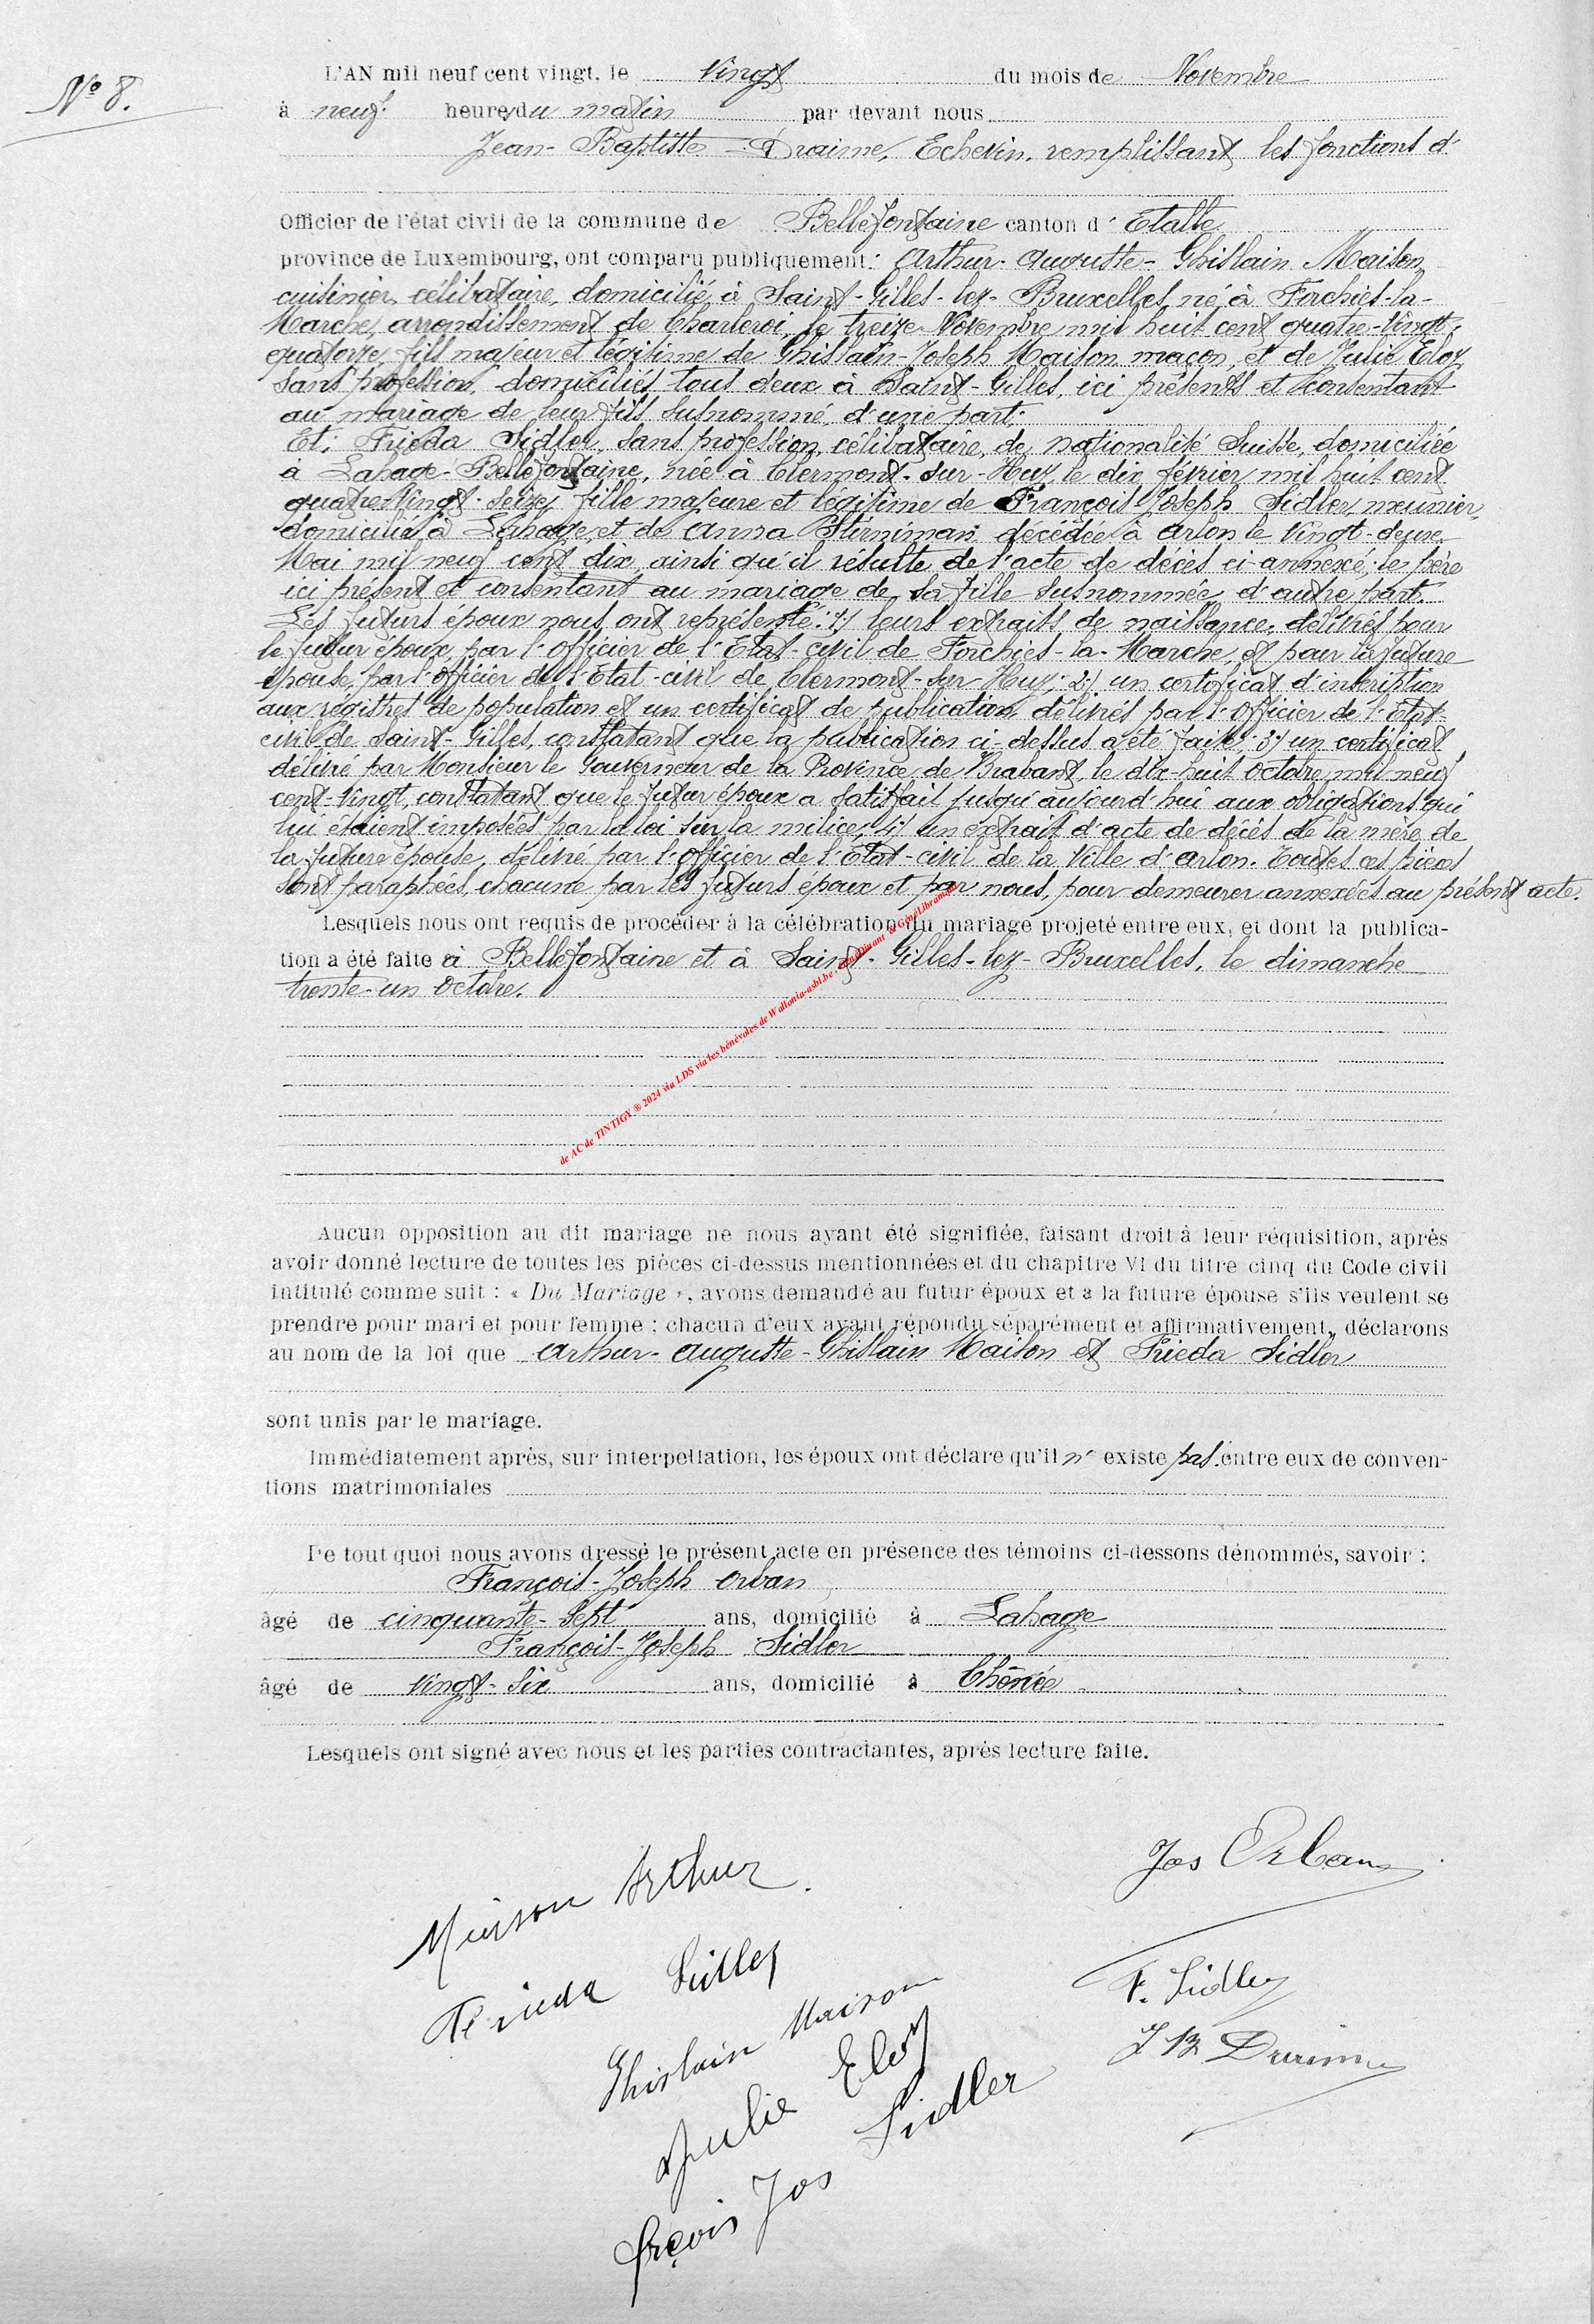 N° 8.
L'AN mil neuf cent vingt, le Vingt du mois de Novembre
à neuf heures du matin par devant nous
Jean-Baptiste Draime, Echevin, remplissant les fonctions d'
Officier de l'état civil de la commune de Bellefontaine canton d' Etalle
province de Luxembourg, ont comparu publiquement: Arthur-Auguste-Ghislain Maison
cuisinier, célibataire, domicilié à Saint-Gilles-lez-Bruxelles, né à Forchies-la-
Marche, arrondissement de Charleroi, le treize Novembre mil huit cent quatre-vingt-
quatorze, fils majeur et légitime de Ghislain-Joseph Maison, maçon, et de Julie Eloy
sans profession, domiciliés tous deux à Saint-Gilles, ici présents et consentant
au mariage de leur fils susnommé, d'une part:
Et: Frieda Sidler, sans profession, célibataire, de nationalité Suisse, domiciliée
à Lahage-Bellefontaine, née à Clermont-sur-Huy, le dix février mil huit cent
quatre-vingt-seize, fille majeure et légitime de François Joseph Sidler, meunier,
domicilié à Lahage et de Anna Stirniman décédée à Arlon le vingt-deux
Mai mil neuf cent dix, ainsi qu'il résulte de l'acte de décès ci-annexé; le père
ici présent et consentant au mariage de sa fille susnommée, d'autre part.
Les futurs époux nous ont représenté: 1/ leurs extraits de naissance, délivrés pour
le futur époux, par l'officier de l'Etat-civil de Forchies-la-Marche, et pour la future
épouse, par l'officier de l'Etat-civil de Clermont-sur-Huy; 2/ un certificat d'inscription
aux registres de population et un certificat de publication, délivrés par l'Officier de l'Etat-
civil de Saint-Gilles, constatant que la publication ci-dessus a été faite; 3/ un certificat
délivré par Monsieur le Gouverneur de la Province de Brabant, le dix-huit Octobre mil neuf
cent-vingt, constatant que le futur époux a satisfait jusqu'aujourd'hui aux obligations qui
lui étaient imposées par la loi sur la milice; 4/ un extrait d'acte de décès de la mère de
la future épouse, délivré par l'officier de l'Etat-civil de la Ville d'Arlon. Toutes ces pièces
sont paraphées, chacune par les futurs époux et par nous, pour demeurer annexées au présent acte.
Lesquels nous ont requis de procéder à la célébration du mariage projeté entre eux, et dont la publica-
tion a été faite à Bellefontaine et à Saint-Gilles-lez-Bruxelles, le dimanche
trente-un Octobre.
de AC de TINTIGY ® 2024 via LDS via les bénévoles de Wallonia-asbl.be,
Aucun opposition au dit mariage ne nous ayant été signifiée, faisant droit à leur réquisition, après
avoir donné lecture de toutes les pièces ci-dessus mentionnées et du chapitre VI du titre cinq du Code civil
intitulé comme suit : « Du Mariage », avons demandé au futur époux et à la future épouse s'ils veulent se
prendre pour mari et pour femme ; chacun d'eux ayant répondu séparément et affirmativement, déclarons
au nom de la loi que Arthur-Auguste-Ghislain Maison et Frieda Sidler
sont unis par le mariage.
Immédiatement après, sur interpellation, les époux ont déclare qu'il n' existe pas entre eux de conven-
tions matrimoniales
De tout quoi nous avons dressé le présent acte en présence des témoins ci-dessons dénommés, savoir :
François-Joseph Orban
âgé de cinquante-sept ans, domicilié à Lahage
François-Joseph Sidler
âgé de vingt-six ans, domicilié à Chênée
Lesquels ont signé avec nous et les parties contractantes, après lecture faite.
Jos Orban
Maison Arthur.
Frieda Sidler
F. Sidler
Ghislain Maison
J B Draime
Julie Eloy
frçois Jos Sidler